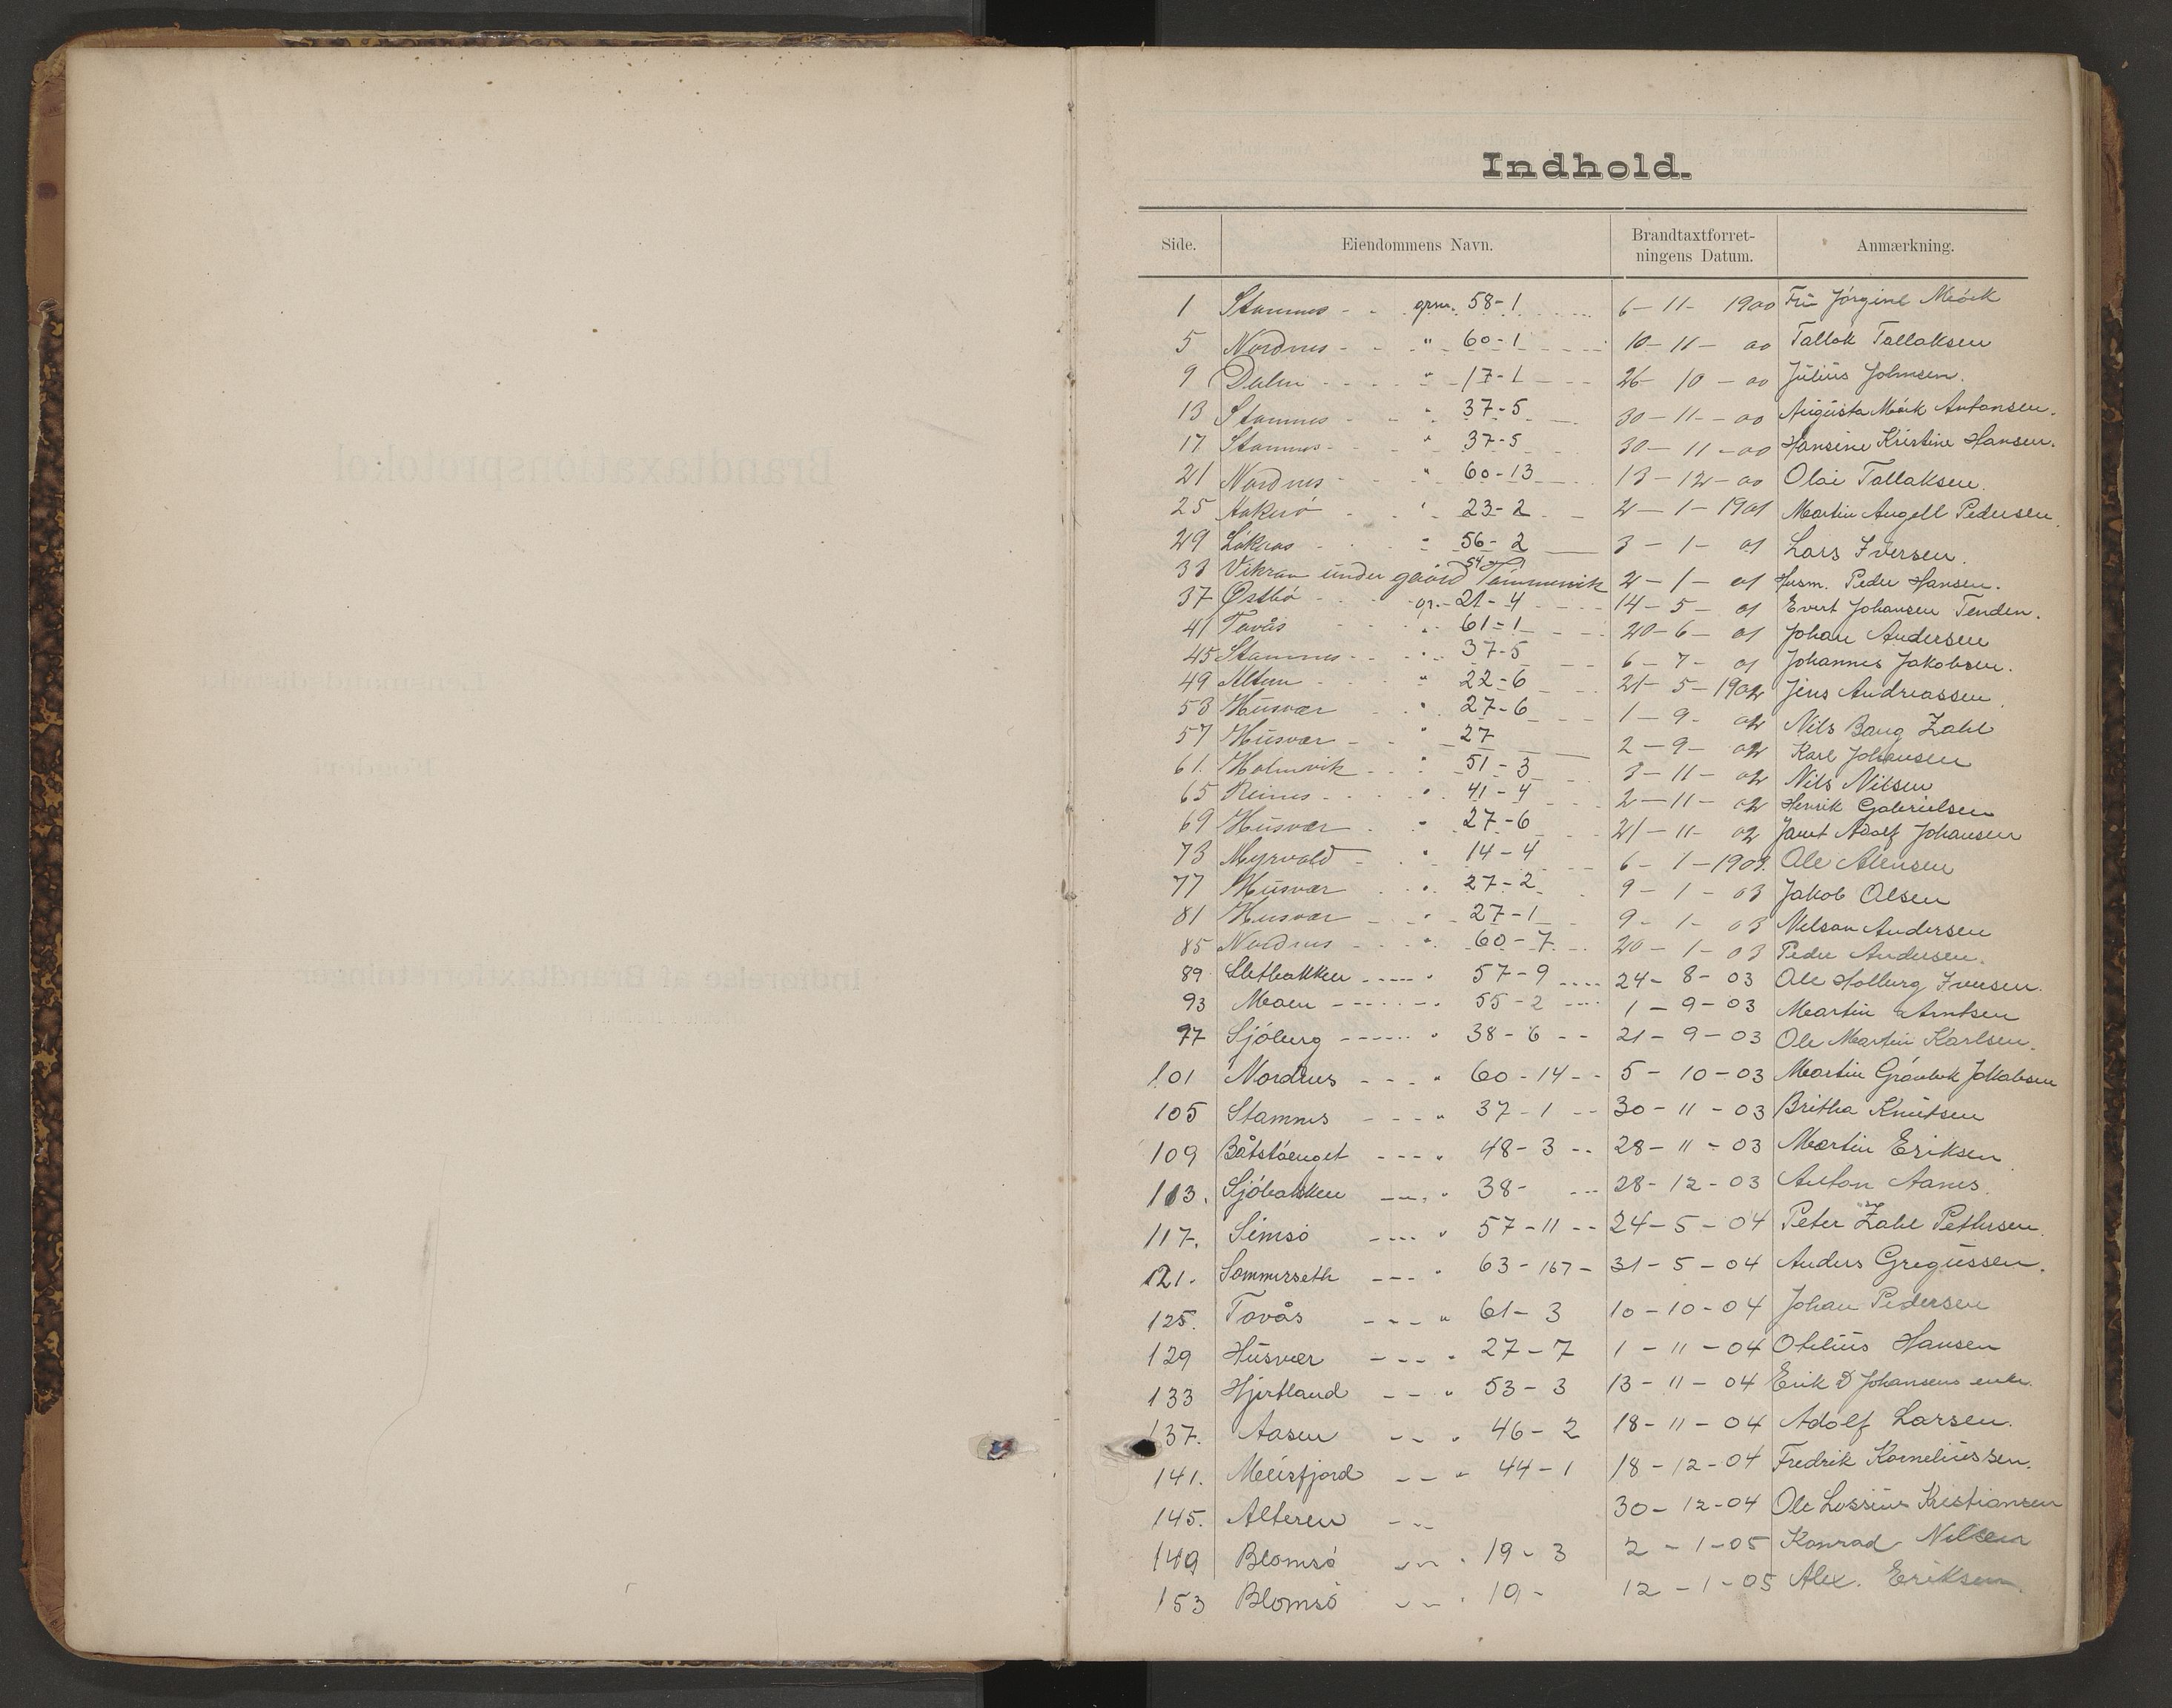 Indhold.
Side. Eiendommens Navn. Brandtaxtforret-ningens Datum. Anmærkning.
1 Stamnes - - grsn. 58-1 6-11-1900 Fru Jörgine Möek
5 Nordnes - - " 60-1 10-11-00 Tallak Tallaksen
9 Dalen - - " 17-1 26-10-00 Julius Johnsen.
13 Stamnes - - " 37-5 30-11-00 Augusta Mörk Antonsen.
17 Stamnes - - " 37-5 30-11-00 Hansine Kristine Hansen.
21 Nordnes - - " 60-13 13-12-00 Olai Tallaksen.
25 Aakerö - - " 23-2 2-1-1901 Martin Angell Pedersen.
29 Lökaas - - " 56-2 3-1-01 Lars Iversen.
33 Vikran under gaard 54 Tömmervik 2-1-01 Husm. Peder Hansen.
37 Østbö - - gr. - 21-4 14-5-01 Evert Johansen Tenden.
41 Tovås - - " 61-1 20-6-01 Johan Andersen
45 Stamnes - - " 37-5 6-7-01 Johannes Jakobsen.
49 Alteren - - " 22-6 21-5-1902 Jens Andreassen.
53 Husvær - - " 27-6 1-9-02 Nils Bang Zahl
57 Husvær - - " 27 2-9-02 Karl Johansen
61. Holmvik - - " 51-3 3-11-02 Nils Nilsen
65 Reines - - " 41-4 2-11-02 Henrik Gabrielsen
69 Husvær - - " 27-6 21-11-02 Adolf Johansen
73 Myrvold - - " 14-4 6-1-1903. Ole Alensen
77 Husvær - - " 27-2 9-1-03 Jakob Olsen
81 Husvær - - " 27-1 9-1-03 Nelson Andersen
85 Nordnes - - " 60-7 20-1-03 Peder Andersen.
89 Sletbakken - - " 57-9 24-8-03 Ole Holberg Iversen.
93 Moen - - " 55-2 1-9-03 Martin Arntsen
97 Sjöberg - - " 38-6 21-9-03 Ole Martin Karlsen.
101 Nordnes - - " 60-14 5-10-03 Martin Grönbek Jakobsen
105 Stamnes - - " 37-1 30-11-03 Britha Knutsen
109 Båtstöenget - - " 48-3 28-11-03 Martin Eriksen
113. Sjöbakken - - " 38- 28-12-03 Anton Aanes.
117. Simsö - - " 57-11 24-5-04 Peter Zahl Pettersen.
121. Sommerseth - - " 63-167 31-5-04 Anders Gregussen.
125. Tovås - - " 61-3 10-10-04 Johan Pedersen
129 Husvær - - " 27-7 1-11-04 Otelius Hansen
133 Hjertland - - " 53-3 13-11-04 Erik D Johansens enke.
137. Aasen - - " 46-2 18-11-04 Adolf Larsen.
141. Meisfjord - - " 44-1 18-12-04 Fredrik Korneliussen.
145. Alteren - - 30-12-04 Ole Lossius Kristiansen
149 Blomsö - - " 19-3 2-1-05 Konrad Nilsen
153 Blomsö - - " 19- 12-1-05 Alex. Eriksen.